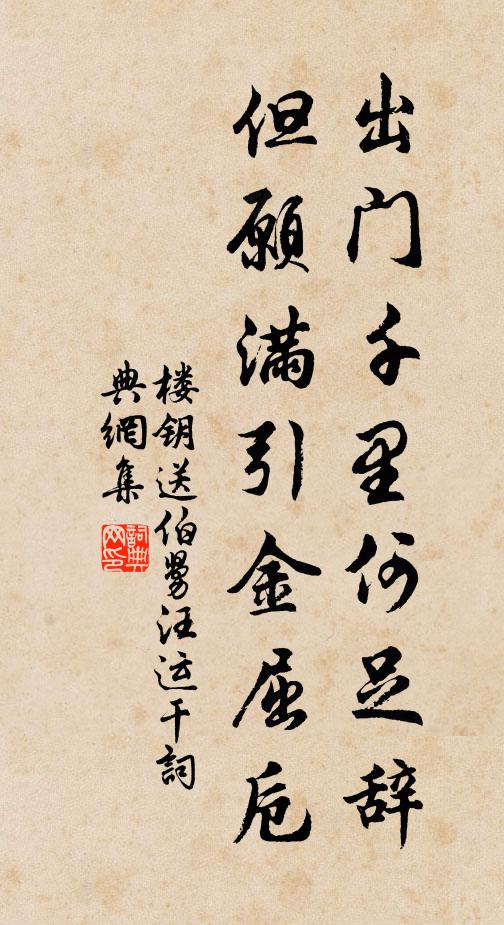 出门千里何足辞
但願满引金屈卮
楼钥送伯舅汪运干詞
典網集
詞典網印